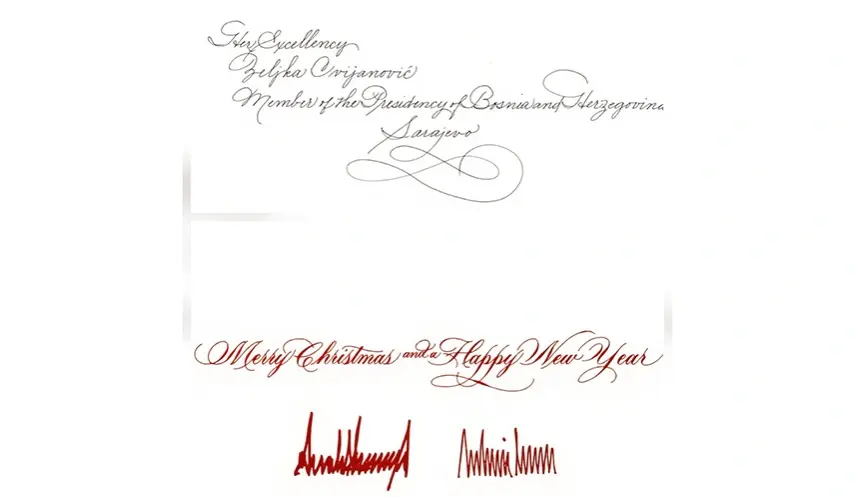 Her Excellency
Zeljka Cvijanović
Member of the Presidency of Bosnia and Herzegovina
Sarajevo
Merry Christmas and a Happy New Year